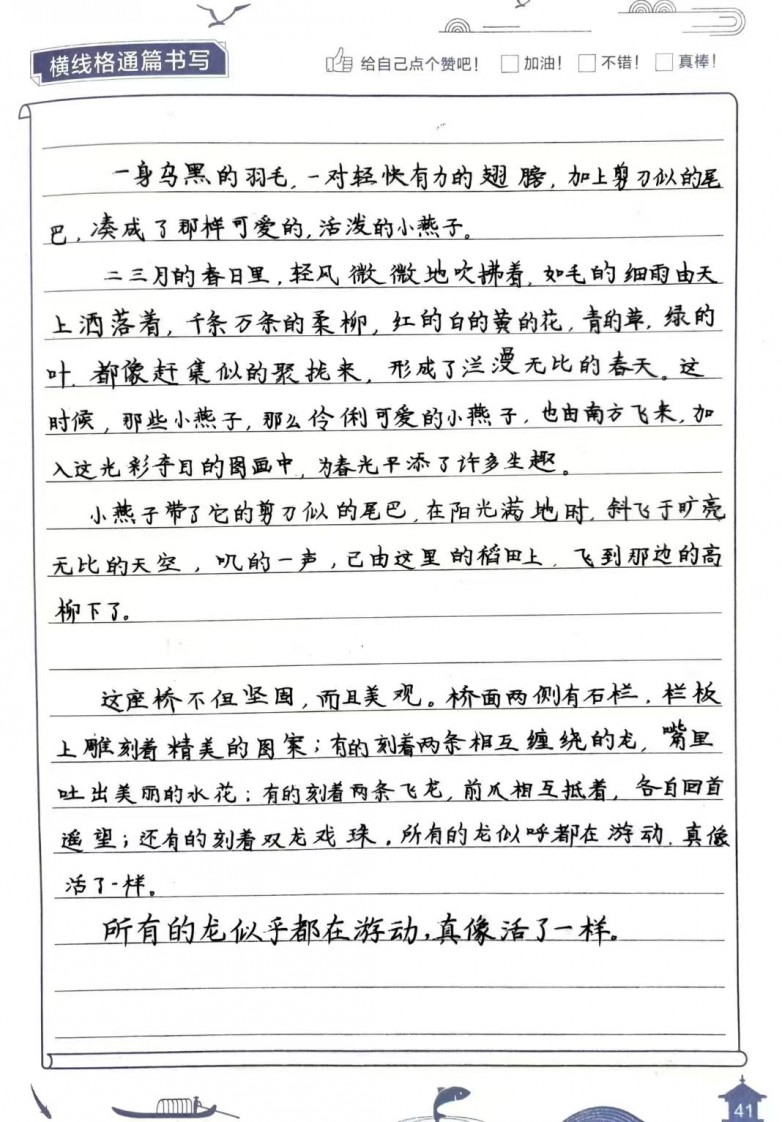 横线格通篇书写
给自己点个赞吧! □加油! □不错! □真棒!
一身乌黑的羽毛,一对轻快有力的翅膀,加上剪刀似的尾
巴,凑成了那样可爱的,活泼的小燕子。
二三月的春日里,轻风微微地吹拂着,如毛的细雨由天
上洒落着,千条万条的柔柳,红的白的黄的花,青的草,绿的
叶,都像赶集似的聚拢来,形成了烂漫无比的春天。这
时候,那些小燕子,那么伶俐可爱的小燕子,也由南方飞来,加
入这光彩夺目的图画中,为春光平添了许多生趣。
小燕子带了它的剪刀似的尾巴,在阳光满地时,斜飞于旷亮
无比的天空,叽的一声,已由这里的稻田上,飞到那边的高
柳下了。
这座桥不但坚固,而且美观。桥面两侧有石栏,栏板
上雕刻着精美的图案;有的刻着两条相互缠绕的龙,嘴里
吐出美丽的水花;有的刻着两条飞龙,前爪相互抵着,各自回首
遥望;还有的刻着双龙戏珠。所有的龙似呼都在游动,真像
活了一样。
所有的龙似乎都在游动,真像活了一样。
41